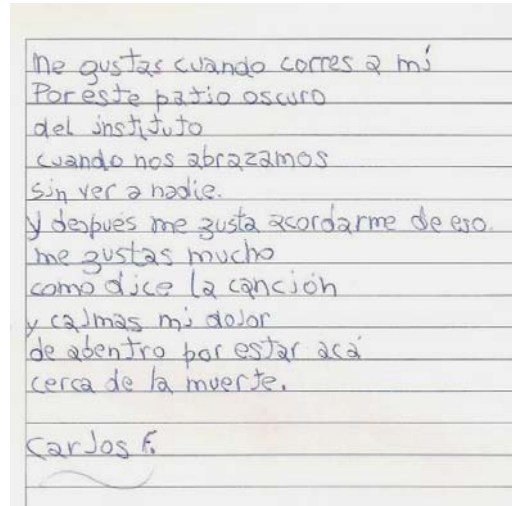 Me gustas cuando corres a mí
Por este patio oscuro
del instituto
cuando nos abrazamos
sin ver a nadie.
y después me gusta acordarme de eso.
me gustas mucho
como dice la canción
y calmas mi dolor
de adentro por estar acá
cerca de la muerte.
Carlos F.